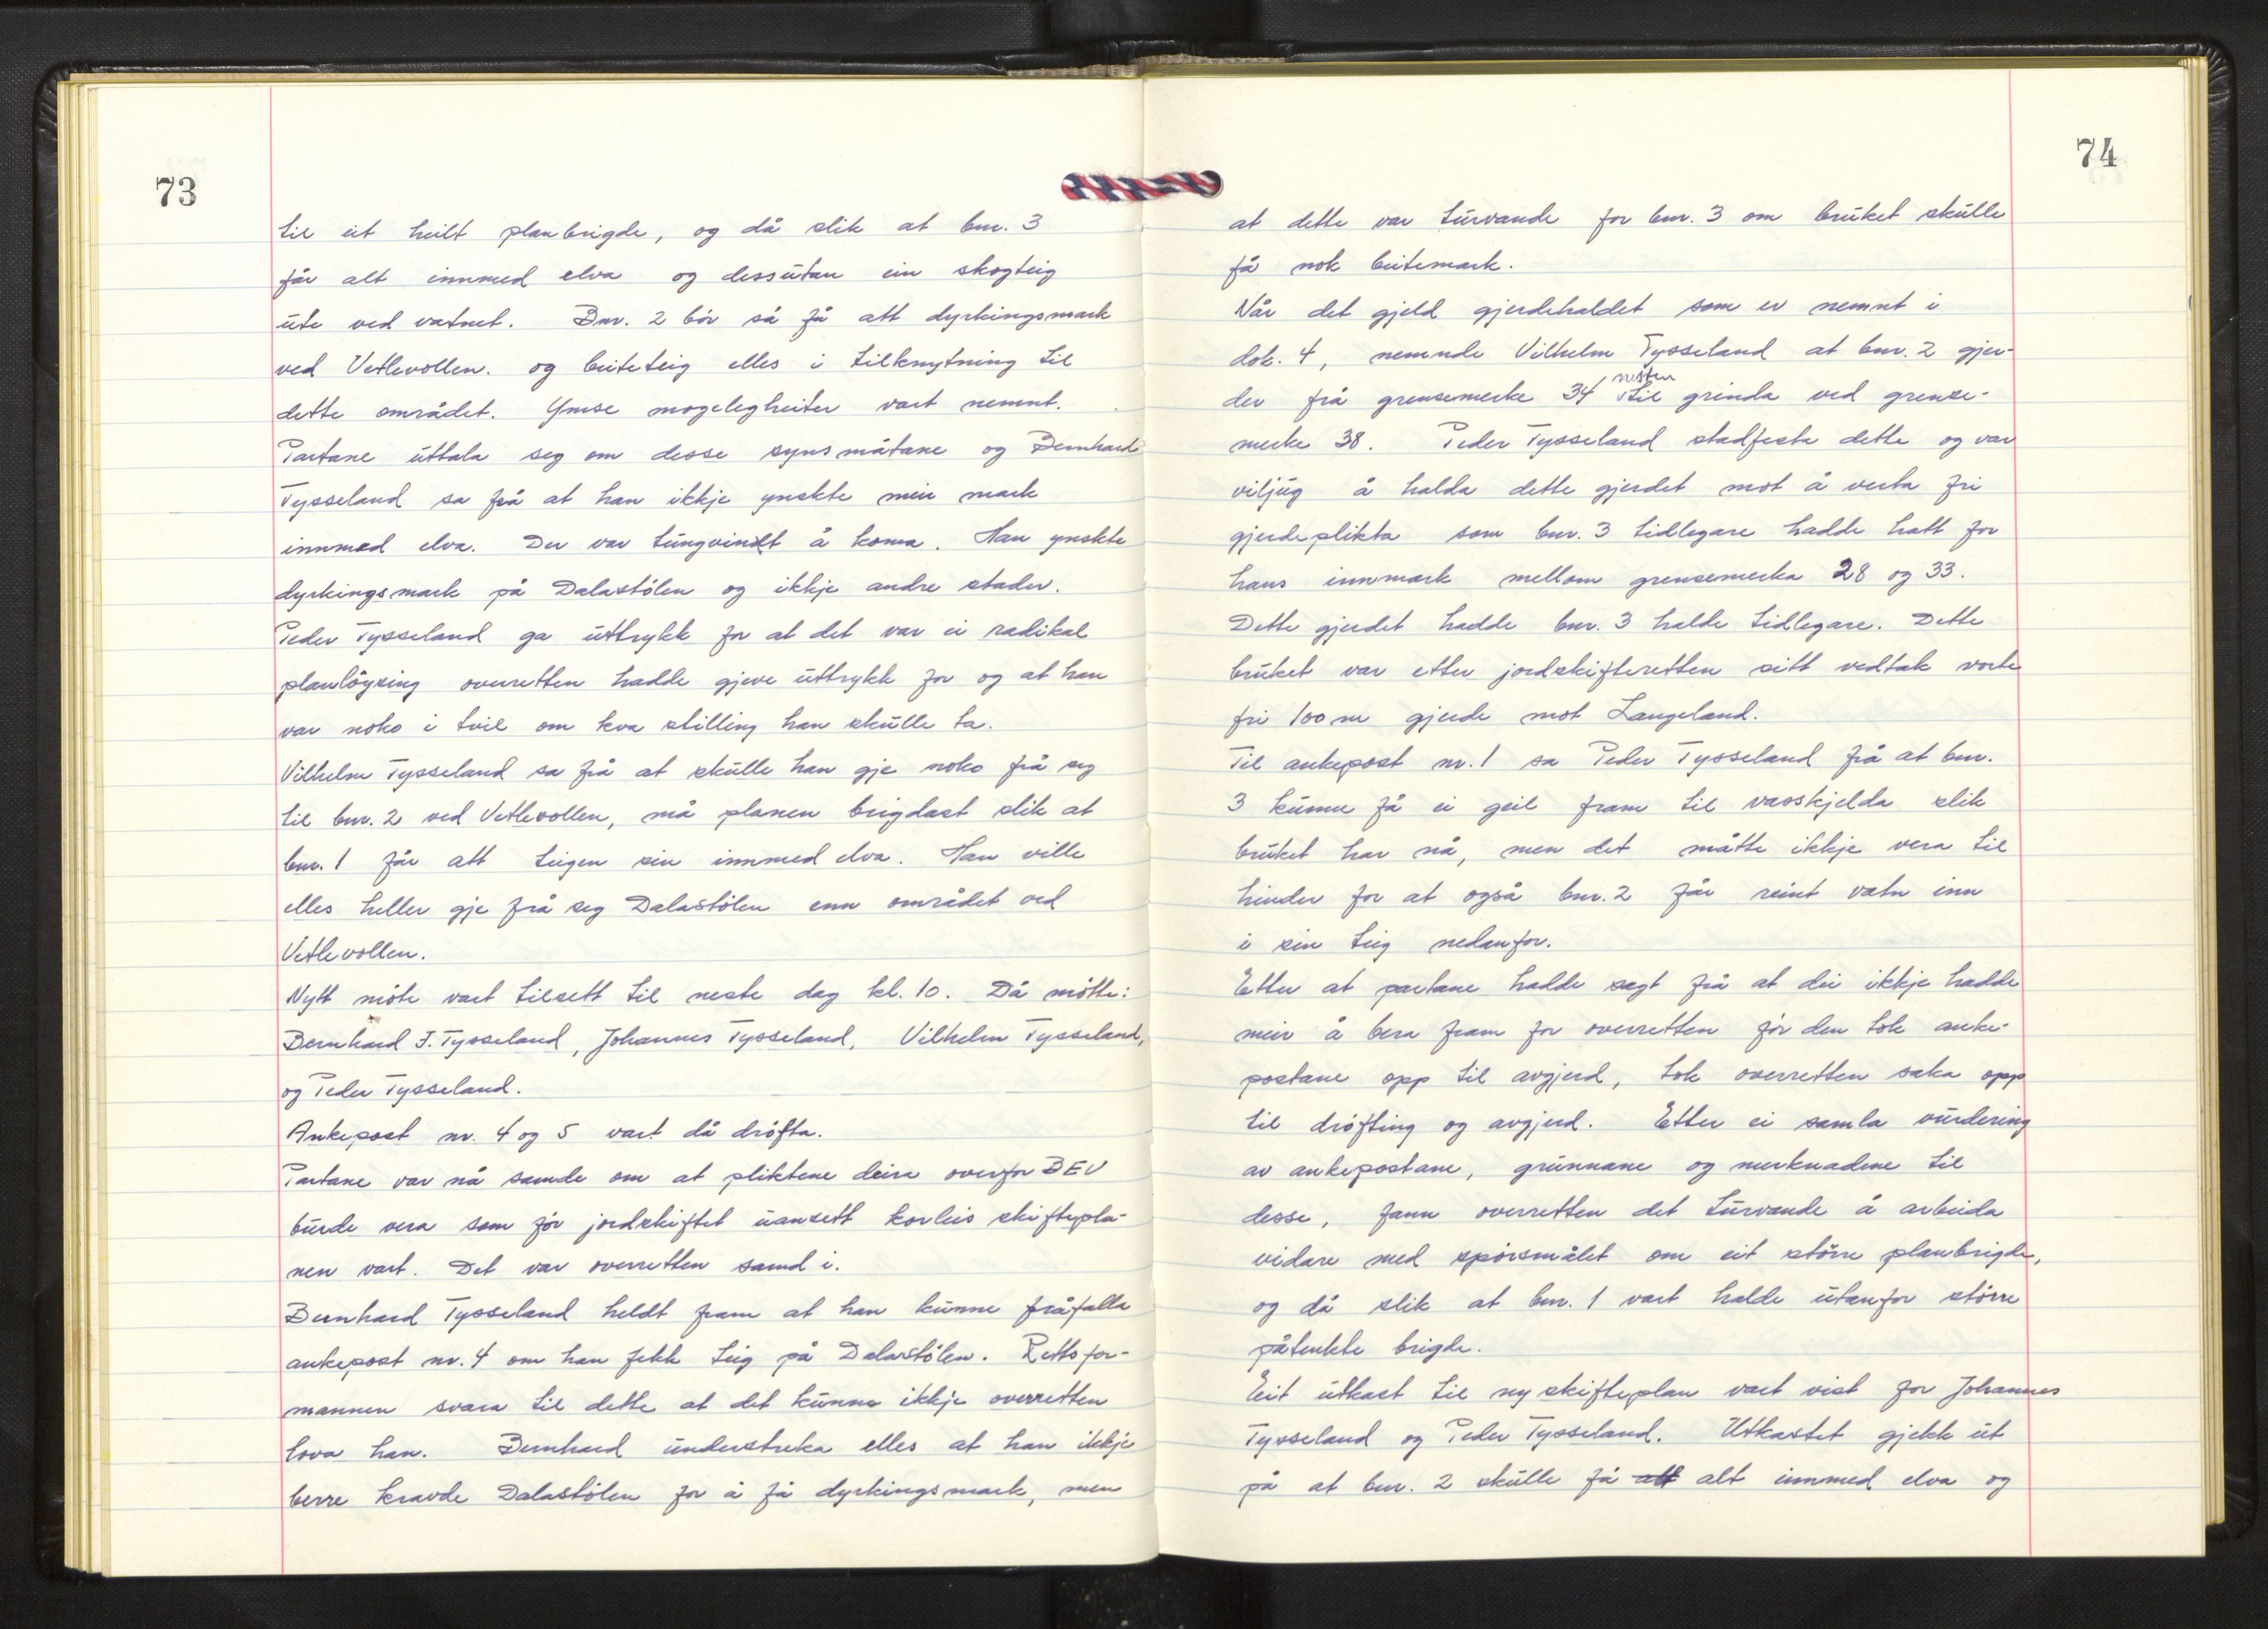 73
til eit heilt planbrigde, og då slik at bnr. 3
får alt innmed elva og dessutan ein skogteig
ute ved vatnet. Bnr. 2 bör så få att dyrkingsmark
ved Vetlevollen. og beiteteig elles i tilknytning til
dette området. Ymse mogelegheiter vart nemnt.
Partane uttala seg om desse synsmåtane og Bernhard
Tysseland sa frå at han ikkje ynskte meir mark
innmed elva. Der var tungvindt å koma. Han ynskte
dyrkingsmark på Dalastölen og ikkje andre stader.
Peder Tysseland ga uttrykk for at det var ei radikal
planlöysing overretten hadde gjeve uttrykk for og at han
var noko i tvil om kva stilling han skulle ta.
Vilhelm Tysseland sa frå at skulle han gje noko frå seg
til bnr. 2 ved Vetlevollen, må planen brigdast slik at
bnr. 1 får att teigen sin innmed elva. Han ville
elles heller gje frå seg Dalastölen enn området ved
Vetlevollen.
Nytt möte vart tilsett til neste dag kl. 10. Då mötte:
Bernhard J. Tysseland, Johannes Tysseland, Vilhelm Tysseland,
og Peder Tysseland.
Ankepost nr. 4 og 5 vart då dröfta.
Partane var nå samde om at pliktene deira overfor BEV
burde vera som för jordskiftet uansett korleis skiftepla-
nen vart. Det var overretten samd i.
Bernhard Tysseland heldt fram at han kunne fråfalla
ankepost nr. 4 om han fekk teig på Dalastölen. Rettsfor-
mannen svara til dette at det kunne ikkje overretten
lova han. Bernhard understreka elles at han ikkje
berre kravde Dalastölen for å få dyrkingsmark, men
74
at dette var turvande for bnr. 3 om bruket skulle
få nok beitemark.
Når det gjeld gjerdehaldet som er nemnt i
dok. 4, nemnde Vilhelm Tysseland at bnr. 2 gjer-
der frå grensemerke 34 nesten til grinda ved grense-
merke 38. Peder Tysseland stadfesta dette og var
viljug å halda dette gjerdet mot å verta fri
gjerdeplikta som bnr. 3 tidlegare hadde hatt for
hans innmark mellom grensemerka 28 og 33.
Dette gjerdet hadde bnr. 3 halde tidlegare. Dette
bruket var etter jordskifteretten sitt vedtak vorte
fri 100 m gjerde mot Langeland.
Til ankepost nr. 1 sa Peder Tysseland frå at bnr.
3 kunne få ei geil fram til vasskjelda slik
bruket har nå, men det måtte ikkje vera til
hinder for at også bnr. 2 får reint vatn inn
i sin teig nedanfor.
Etter at partane hadde sagt frå at dei ikkje hadde
meir å bera fram for overretten för den tok anke-
postane opp til avgjerd, tok overretten saka opp
til dröfting og avgjerd. Etter ei samla vurdering
av ankepostane, grunnane og merknadene til
desse, fann overretten det turvande å arbeida
vidare med spörsmålet om eit större planbrigde,
og då slik at bnr. 1 vart halde utanfor större
påtenkte brigde.
Eit utkast til ny skifteplan vart vist for Johannes
Tysseland og Peder Tysseland. Utkastet gjekk ut
på at bnr. 2 skulle få att alt innmed elva og